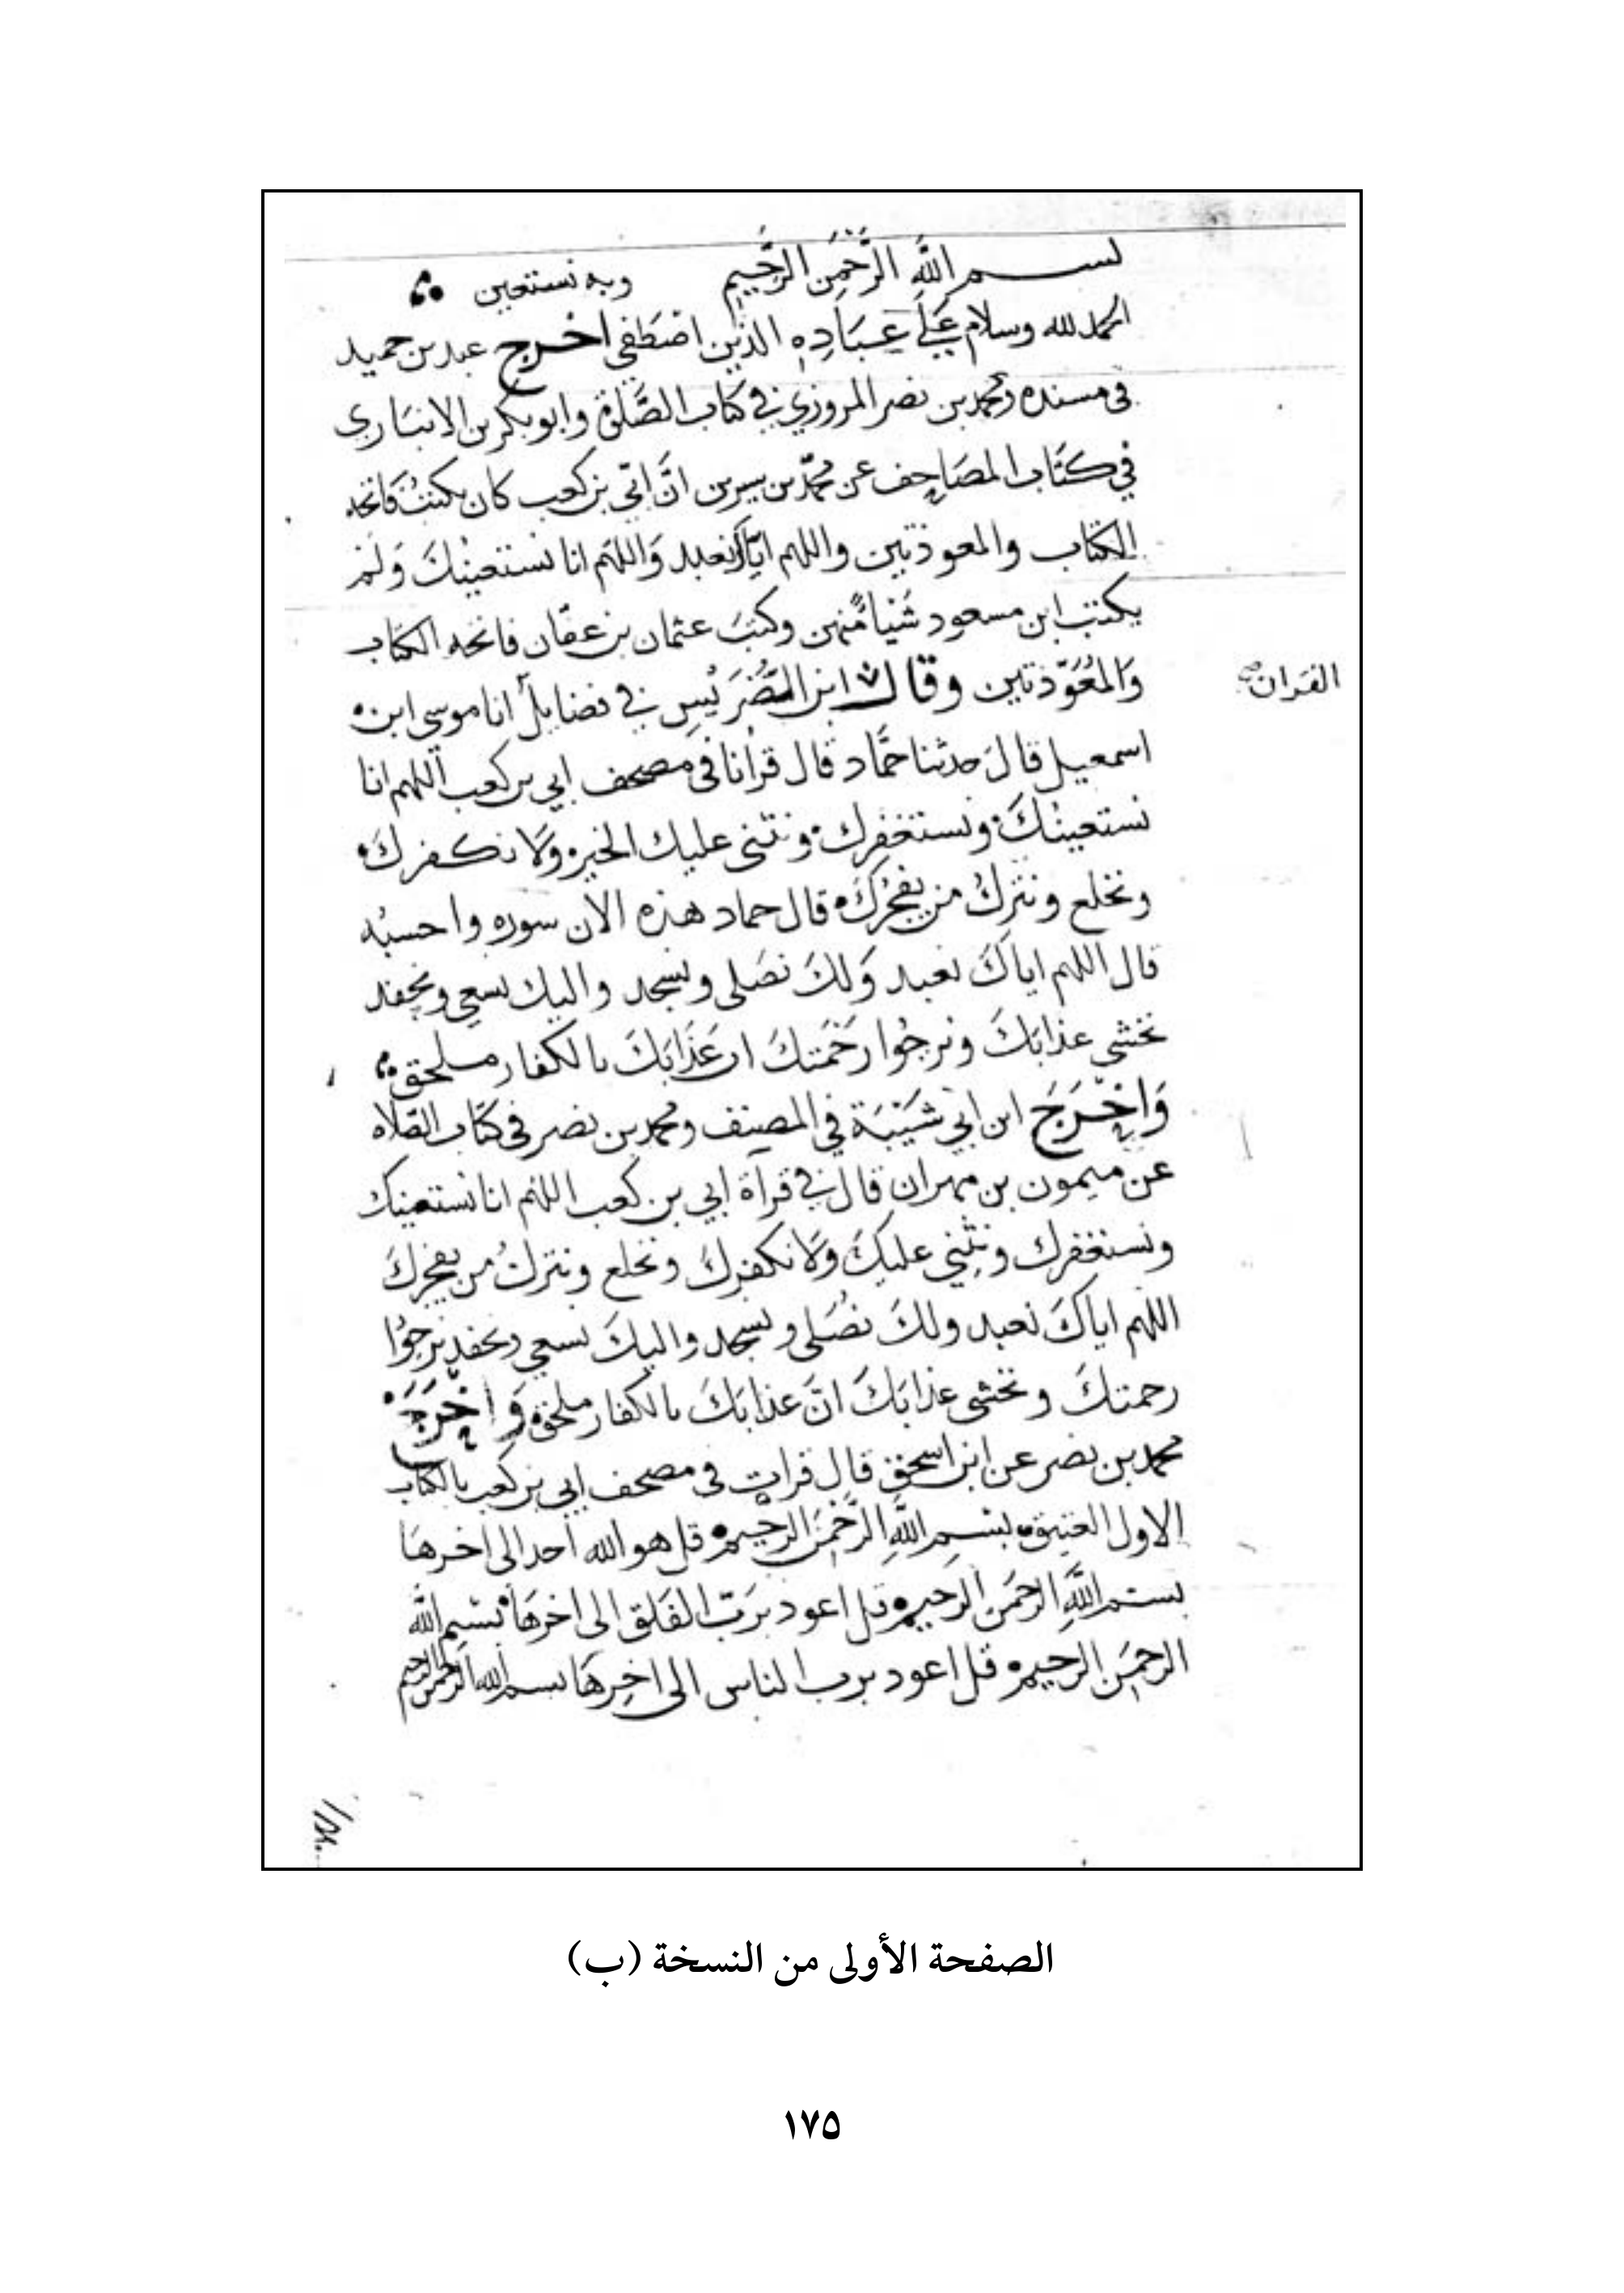 بسم الله الرَّحْمَنِ الرَّحِيمِ وبه نستعين
الحمد لله وسلام عَلَى عِبَادِهِ الذين اصْطَفى اخرج عبد بن حميد
فى مسنده ومحمد بن نصر المروزي في كتاب الصَّلوة وابو بكر بن الانبَاري
في كتَاب المصَاحِف عن محمّد بن سيرين انَّ ابيّ بن كعب كان يكتبُ فاتحه
الكتاب والمعوذتين واللهم ايّاكَ نعبد وَاللهّم انا نستعينُكَ وَلمْ
يكتب ابن مسعود شَيْيا مِّنهن وكتبَ عثمان بن عفّان فاتحه الكتاب
وَالمُعَوّذتين وقال ابن الضُّرَيْسِ في فضايل أنا موسى ابن
القران صح
اسمعيل قالَ حدثنا حمَّاد قال قرأنا فى مصحف ابي بن كعب اللهم انا
نستعينُكَ ونستغفِرك ونثنى عليك الخير ولا نكفركَ
ونخلع ونتركُ من يفجُرُكَ قال حماد هذه الان سوره واحسبُه
قال اللهم اياكَ نعبد وَلكَ نصَلى ونسْجد واليك نسعى ونحفد
نخشى عذابَكَ ونرجُوا رَحْمَتكَ ان عَذَابَكَ بالكفار ملحق
وَاخْرَجَ ابن ابي شَيْبَة في المصنف ومحمد بن نصر فى كتَاب الصّلاه
عن ميمون بن مهران قال في قراة ابي بن كعب اللهم انا نستعينك
ونستغفرك ونثني عليكَ وَلا نكفركَ ونخلع ونتركُ من يفجركَ
اللهم اياكَ نعبد ولكَ نصَلى ونسجد واليكَ نسعى ونحفد نرجوُا
رحمتكَ ونخشى عذابَكَ انَّ عذابَكَ بالكفار ملحق وَاخْرَجَ
محمد بن نصر عن ابن اسحق قال قرات فى مصحف ابي بن كعب بالكتاب
الاول العتيق بسْمِ اللهِ الرَّحْمَنِ الرحِيم قل هو الله أحد الى اخرهَا
بسم اللهِ الرحمَن الرَحيم قل اعوذ برَبّ الفَلق الى اخرهَا بسْمِ الله
الرحمَن الرحيم قل اعوذ برب الناس الى اخِرهَا بسم الله الرحمن الرحيم
الصفحة الأولى من النسخة (ب)
١٧٥